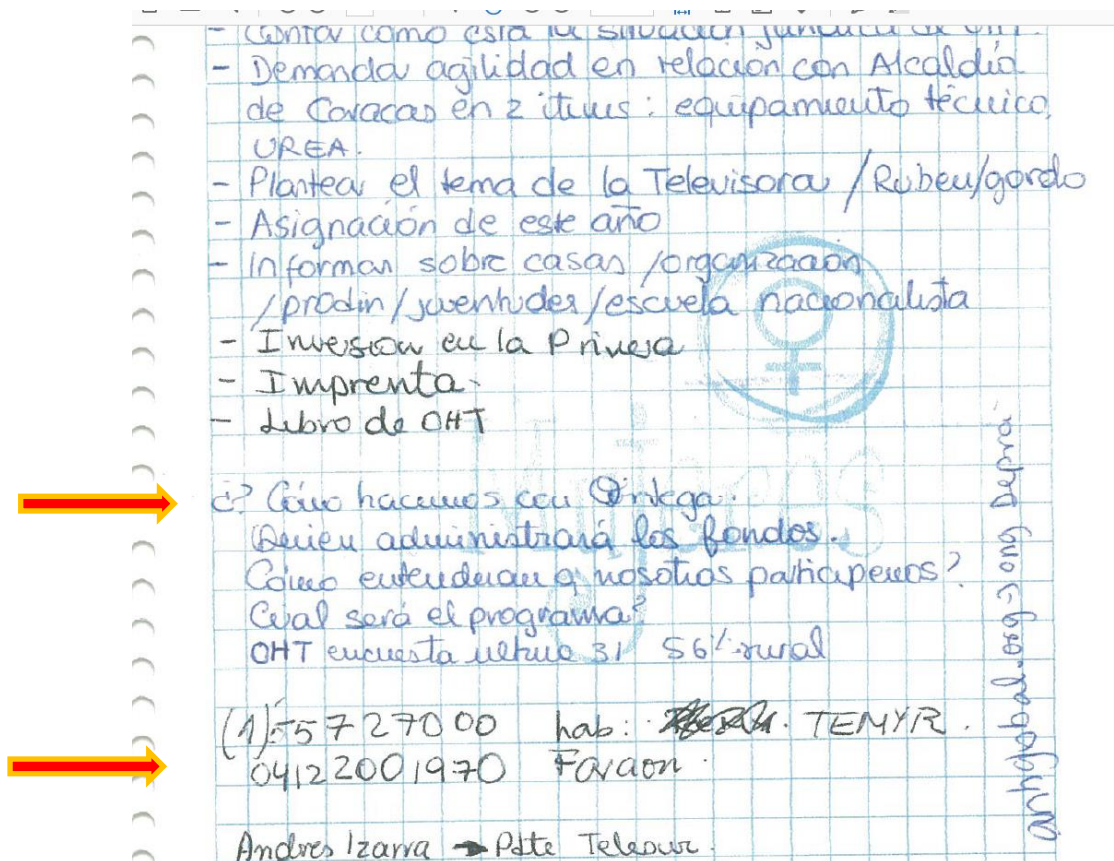 - Contar como está la situación jurídica de OHT.
- Demandar agilidad en relación con Alcaldía
de Caracas en 2 items: equipamiento técnico,
UREA.
- Plantear el tema de la Televisora / Ruben/gordo
- Asignación de este año
- Informar sobre casas /organización
/prodin/juventudes/escuela nacionalista
- Inversion en la Primera
- Imprenta.
- Libro de OHT
¿? Cómo hacemos con Ortega.
Quien administrará los fondos.
Cómo entenderian q nosotros participemos?
Cual será el programa?
OHT encuesta ultimo 31 56% rural
(1)-5727000 hab: TEMYR.
04122001970 Faraon.
Andres Izarra → Pdte Telesur.
antiglobal.org → ong Depra